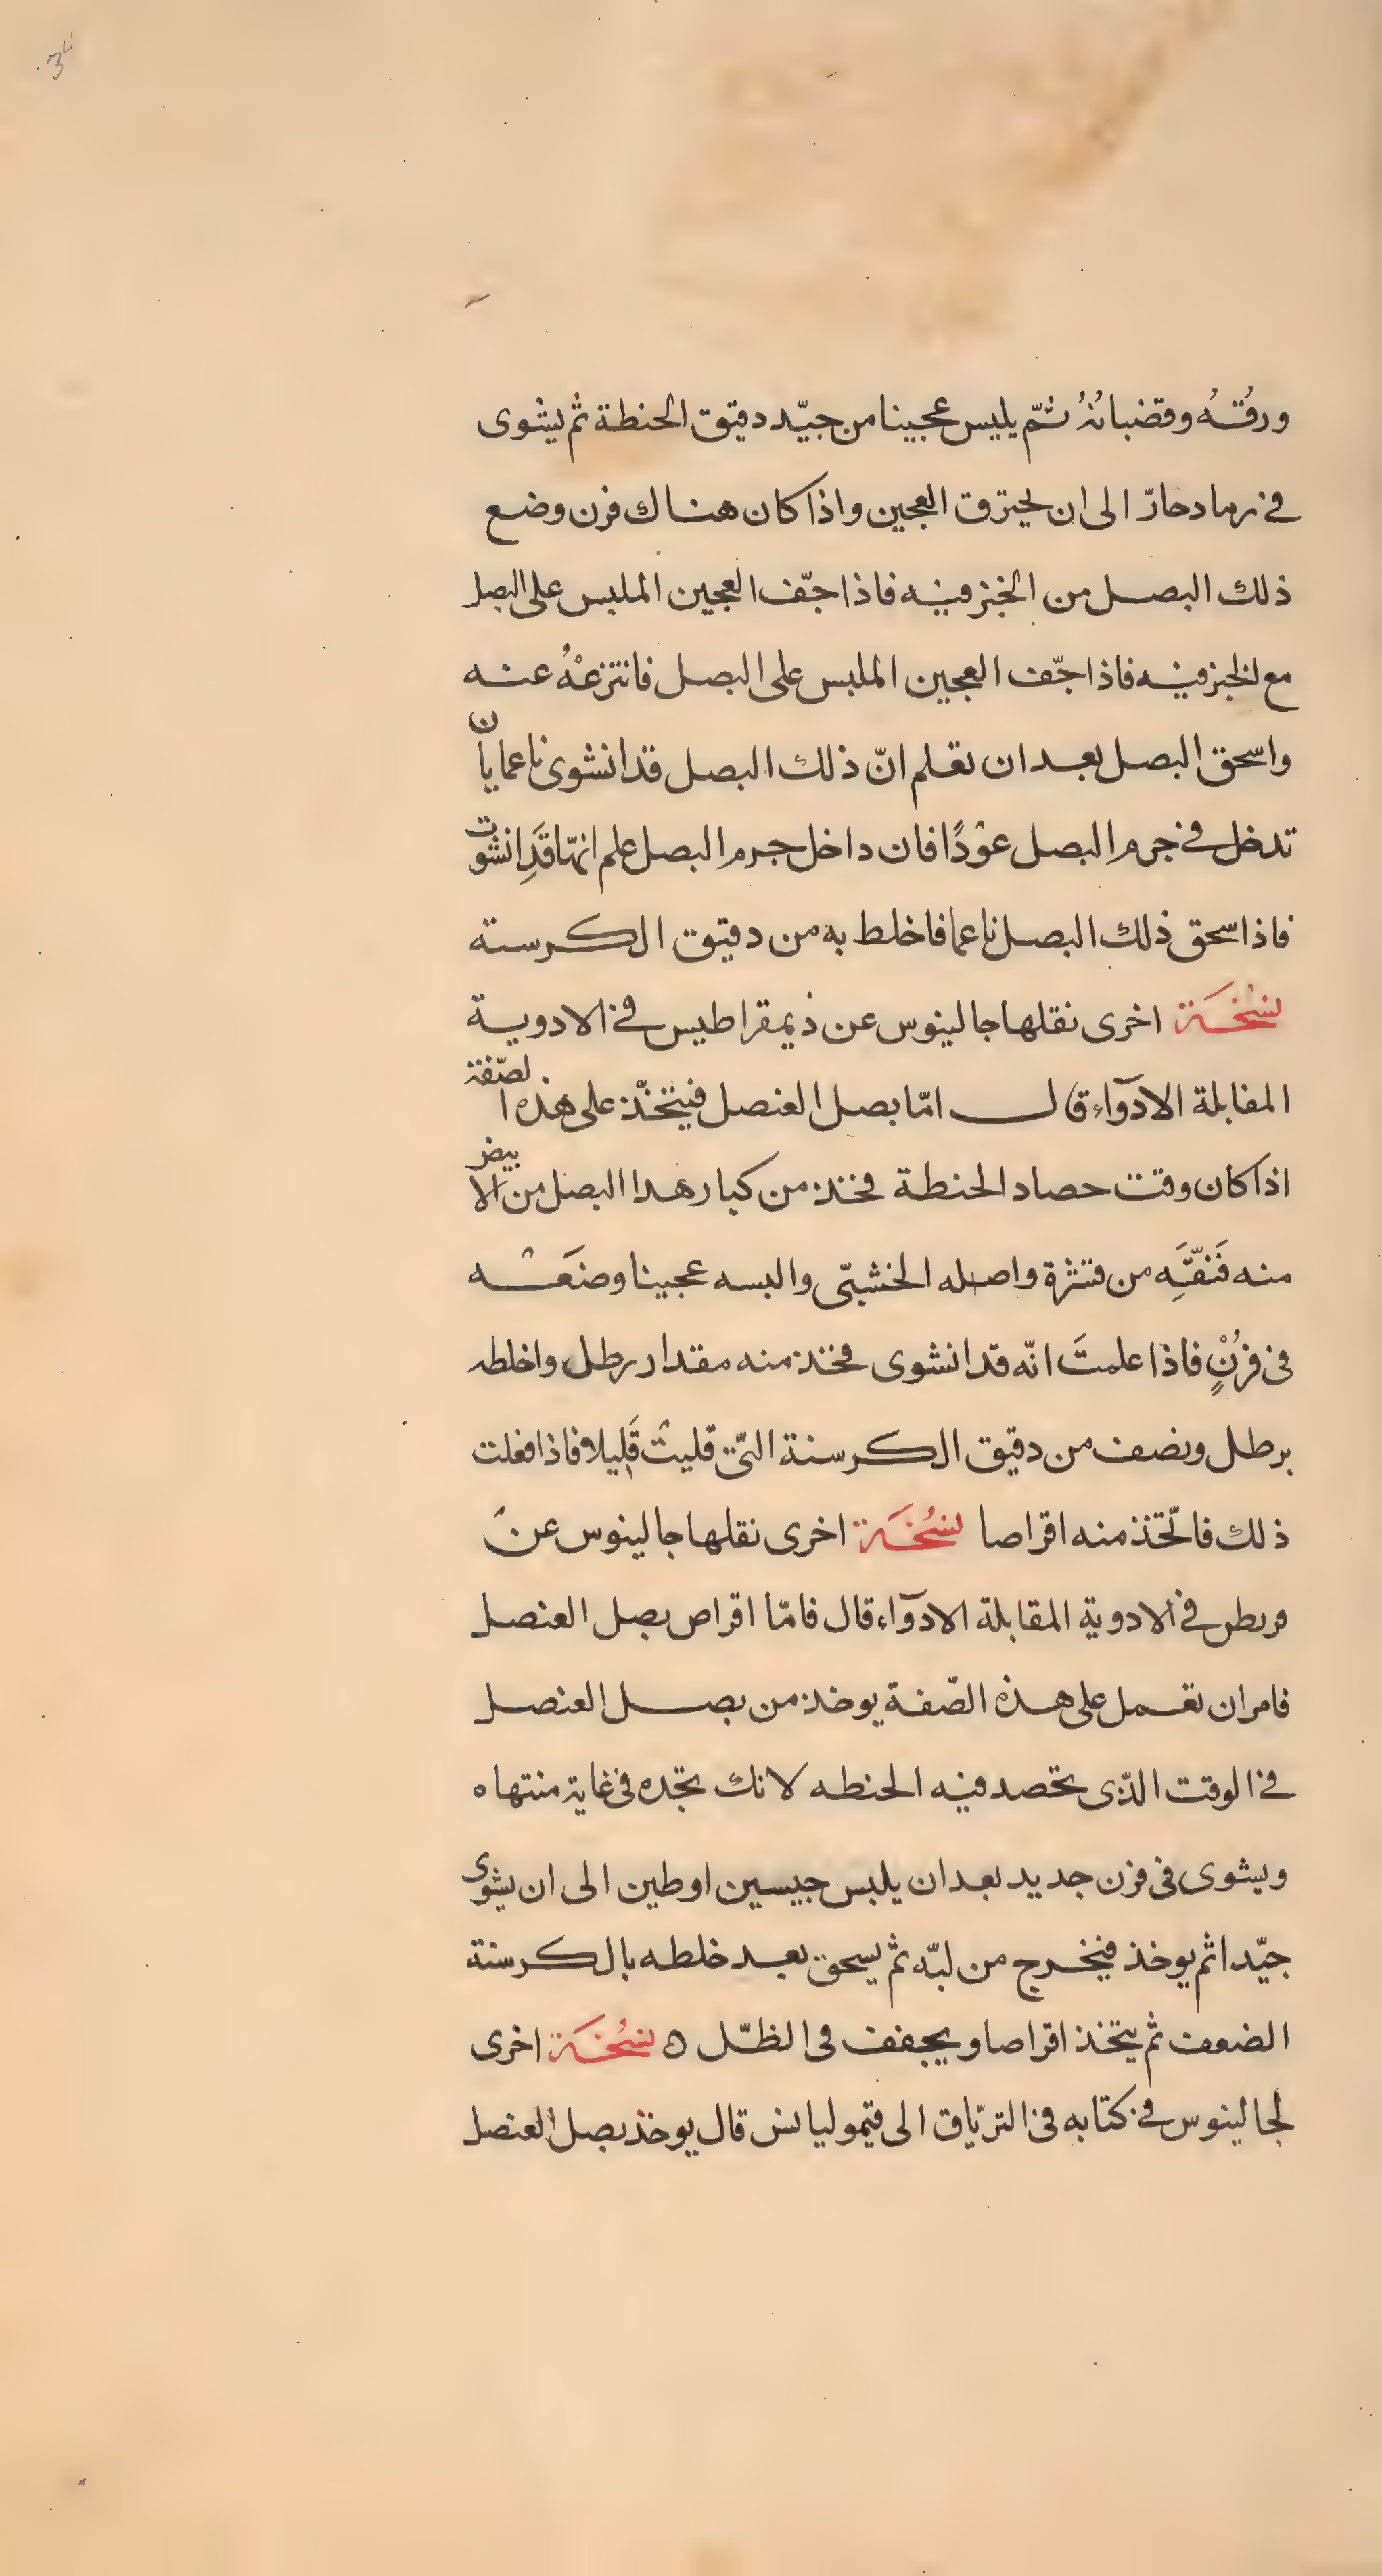 ورقُهُ وقضبانُهُ ثمّ يلبس عجينا من جيّد دقيق الحنطة ثم يشوى
في رماد حارّ الى ان يحترق العجين واذا كان هناك فرن وضع
ذلك البصل من الخبز فيه فاذا جفّ العجين الملبس على البصل
مع الخبز فيه فاذا جفّ العجين الملبس على البصل فانتزعْهُ عنه
واسحق البصل بعد ان تعلم انّ ذلك البصل قد انشوى ناعما بان
تدخل في جرم البصل عوْدًا فان داخل جرم البصل علم انهّا قَدِ انشوت
فاذا سحق ذلك البصل ناعما فاخلط به من دقيق الكرسنة
نسُخَة اخرى نقلها جالينوس عن ذيمقراطيس في الادوية
المقابلة الادوآء قال امّا بصل العنصل فيتخّذ على هذه الصّفة
اذا كان وقت حصاد الحنطة فخذ من كبار هدا البصل من الابيض
منه فَنَقّهَِ من قشرة واصله الخشبيّ والبسه عجينا وضَعْه
في فرُنٍْ فاذا علمتَ انّه قد انشوى فخذ منه مقدار رطل واخلطه
برطل ونصف من دقيق الكرسنة التّي قليتْ قَليلا فاذا فعلت
ذلك فاتّخذ منه اقراصا نسُخَة اخرى نقلها جالينوس عن
قريطن في الادوية المقابلة الادوآء قال فامّا اقراص بصل العنصل
فامر ان تعمل على هذه الصّفة يوخذ من بصل العنصل
في الوقت الذّى تحصد فيه الحنطه لانك تجده في غاية منتهاه
ويشوى في فرن جديد بعد ان يلبس جيسين او طين الى ان يشوى
جيّدا ثم يوخذ فيخرج من لبّه ثم يسحق بعد خلطه بالكرسنة
الضعف ثم يتخذ اقراصا ويجفف فى الظّل ه نسُخَة اخرى
لجالينوس في كتابه في الترّياق الى قيموليانس قال يوخذ بصل العنصل